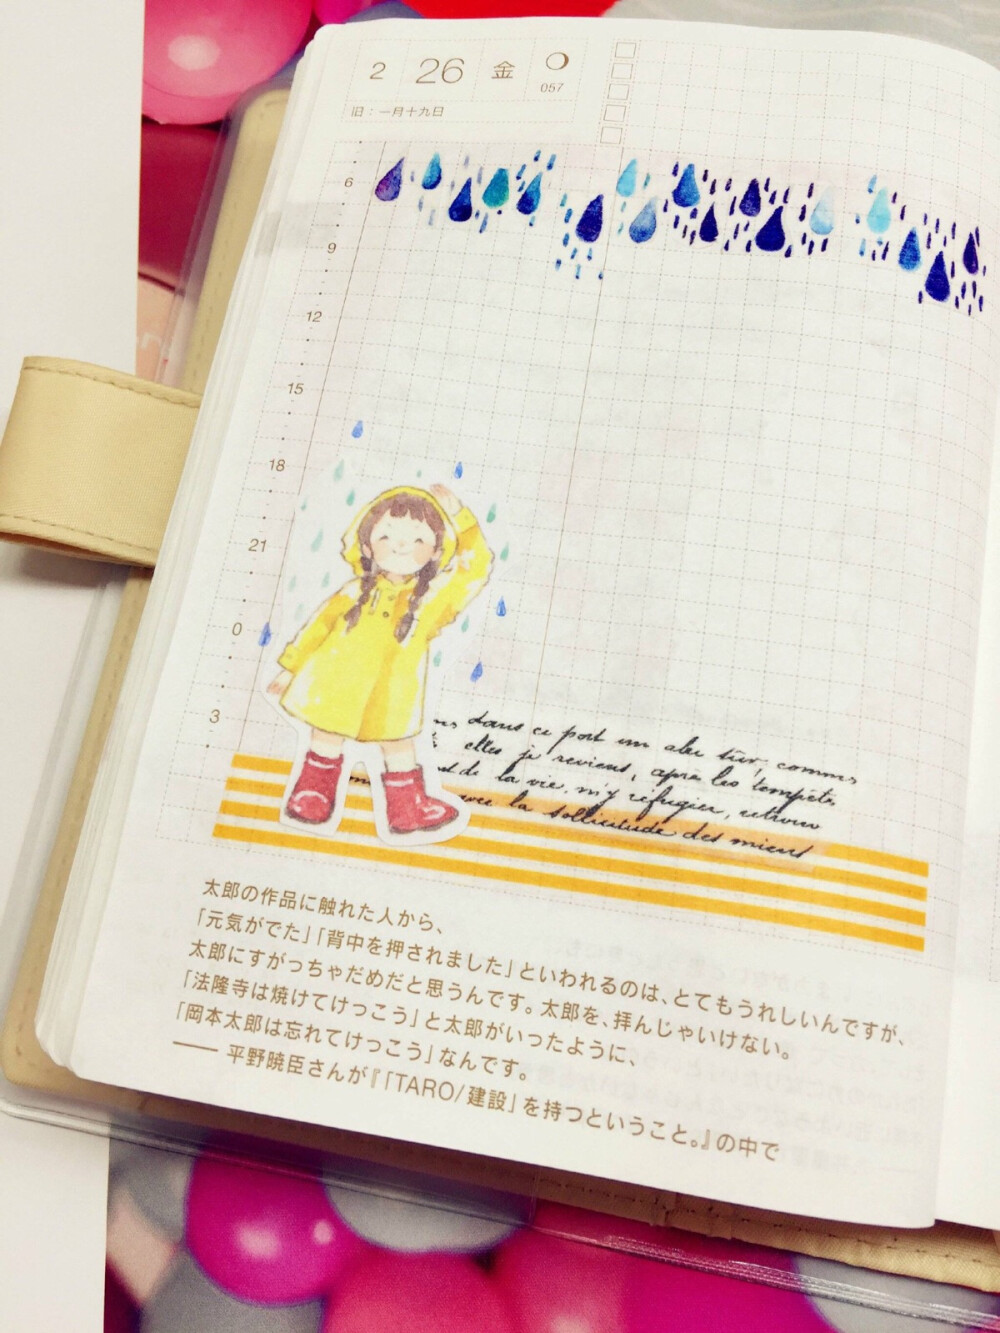 2 26 金
057
旧：一月十九日
6
9
12
15
18
21
0
3
dans ce port un abri sûr, comme
elles je reviens, après les tempêtes
de la vie, m'y réfugier, retrouver
avec la sollicitude des miens
太郎の作品に触れた人から、
「元気がでた」「背中を押されました」といわれるのは、とてもうれしいんですが、
太郎にすがっちゃだめだと思うんです。太郎を、拝んじゃいけない。
「法隆寺は焼けてけっこう」と太郎がいったように、
「岡本太郎は忘れてけっこう」なんです。
―― 平野暁臣さんが『「TARO/建設」を持つということ。』の中で